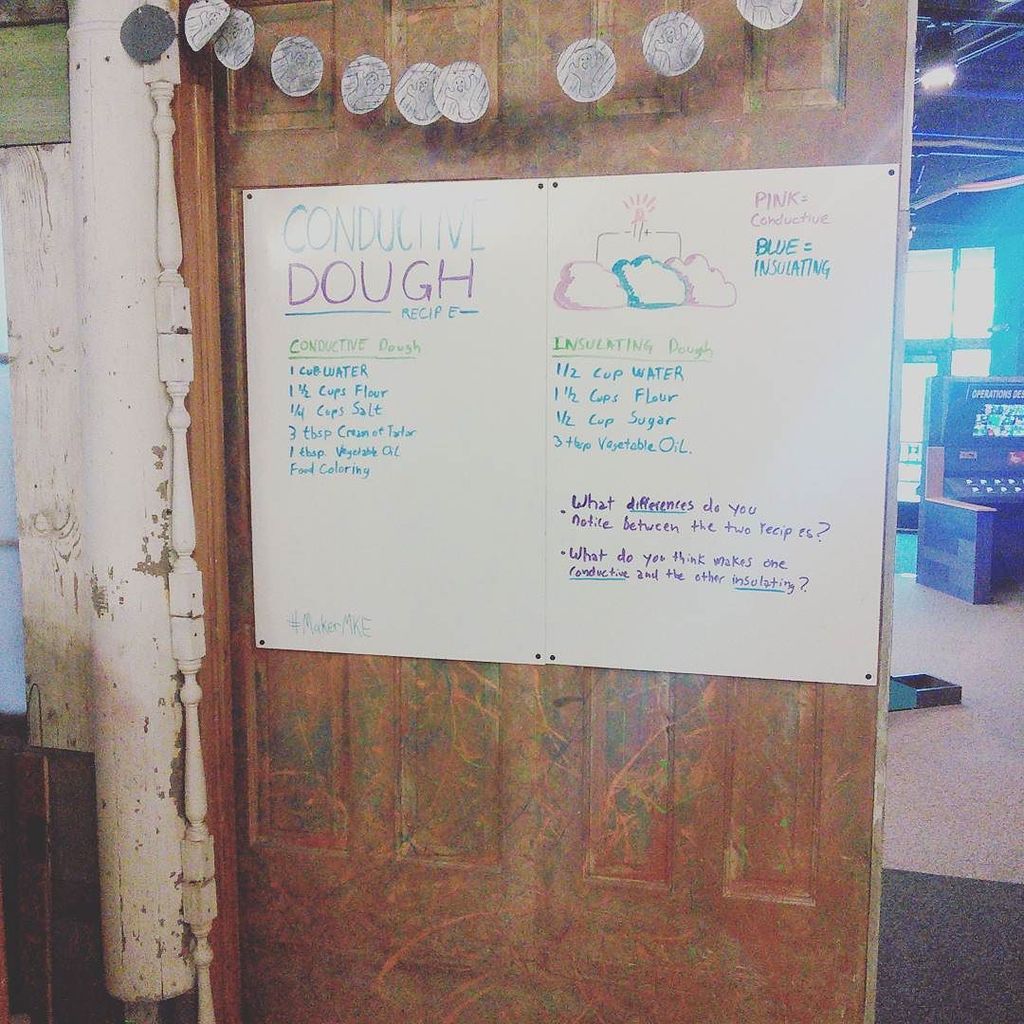 CONDUCTIVE
DOUGH
RECIPE
CONDUCTIVE Dough
1 CUP WATER
1 1/2 Cups Flour
1/4 Cups Salt
3 tbsp Cream of Tartar
1 tbsp. Vegetable OiL
Food Coloring
#MakerMKE
PINK =
Conductive
BLUE =
INSULATING
- +
INSULATING Dough
1/2 Cup WATER
1 1/2 Cups Flour
1/2 Cup Sugar
3 tbsp Vegetable OiL.
• What differences do you
notice between the two recipes?
• What do you think makes one
conductive and the other insulating?
OPERATIONS DES